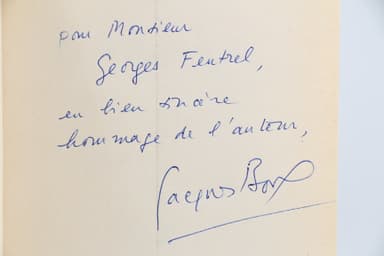 pour Monsieur
Georges Fentrel,
en bien sincère
hommage de l'auteur,
Jacques Borel